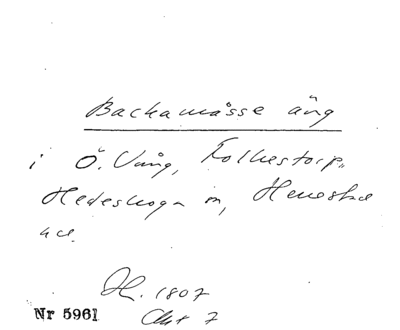 Backamåsse äng
i Ö. Vång, Folkestorp,
Hedeskoga m,
H. 1807
Akt 7
Nr 5961